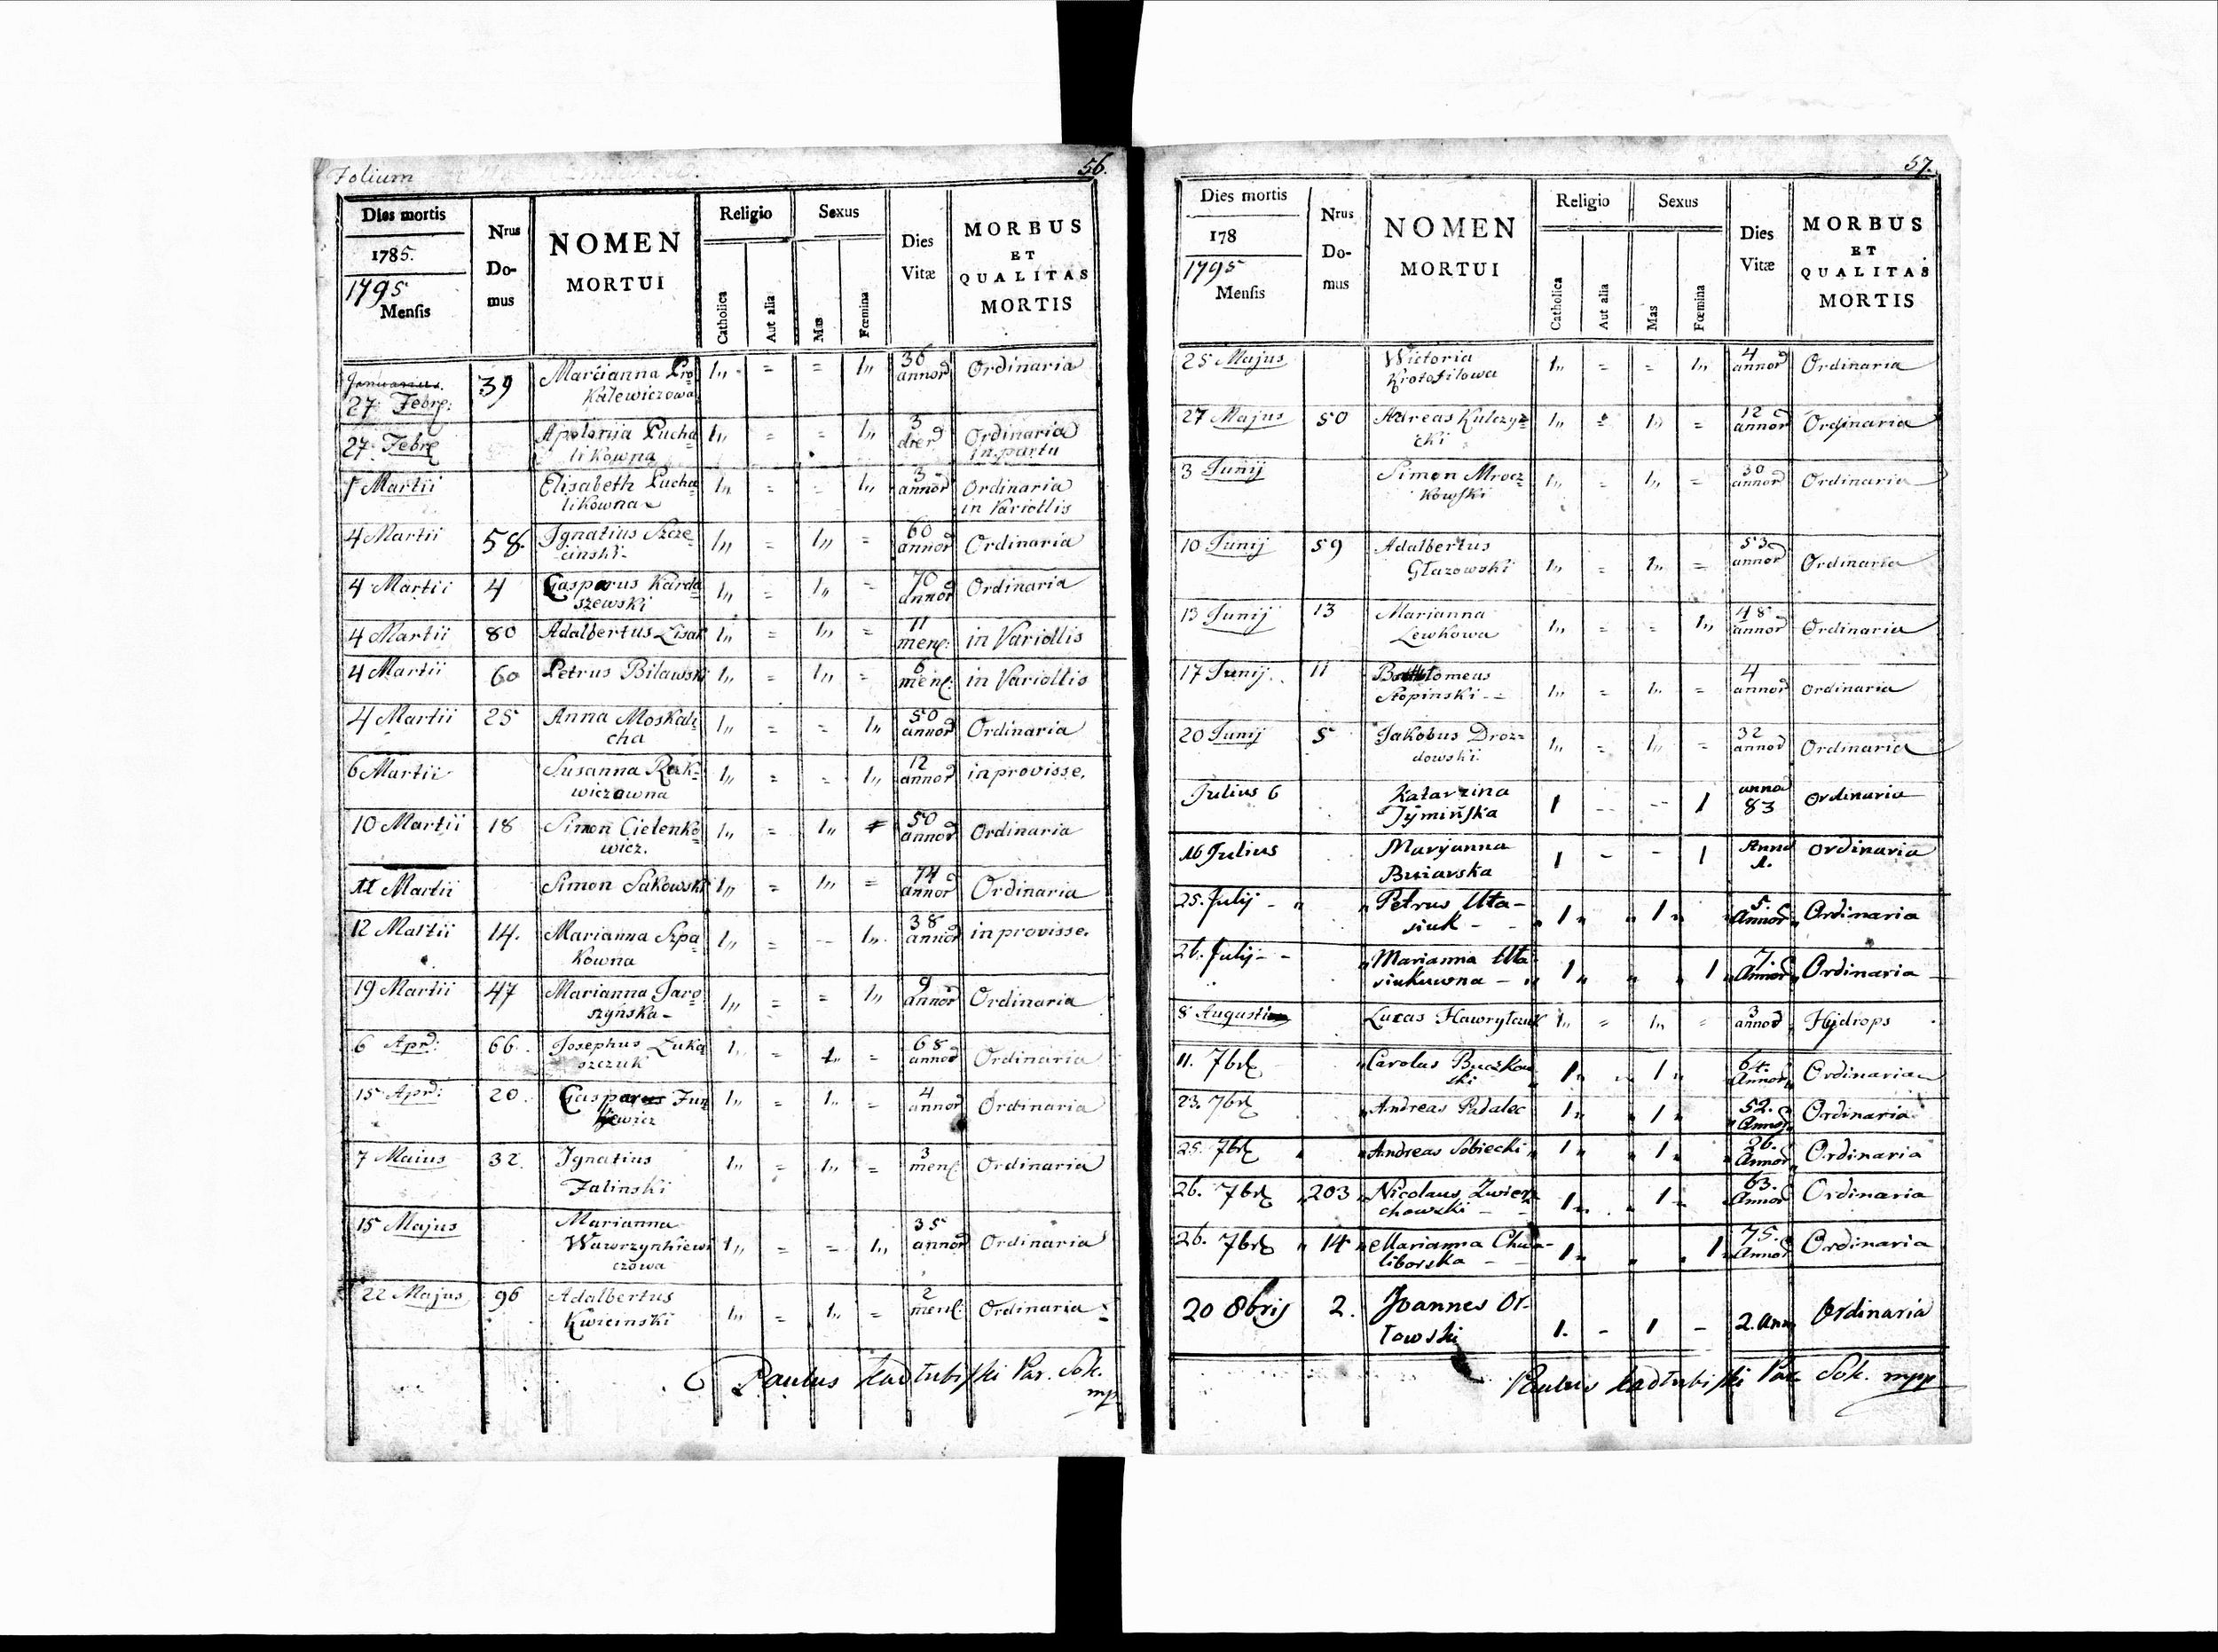 Folium
56.
Dies mortis
1785.
1795
Mensis
Nrus
Do-
mus
NOMEN
MORTUI
Religio
Catholica
Aut alia
Sexus
Mas
Fœmina
Dies
Vitæ
MORBUS
ET
QUALITAS
MORTIS
Januarius.
27. Febr: 39 Marcianna Pro= 1,, = = 1,, 36 annor Ordinaria
kalewiczowa
27. Febr Apolonija Pucha= 1,, = = 1,, 3 dier Ordinaria
likowna in partu
1 Martii Elisabeth Pucha= 1,, = = 1,, 3 annor Ordinaria
likowna in Variollis
4 Martii 58. Ignatius Szcze= 1,, = 1,, = 60 annor Ordinaria
cinski-
4 Martii 4 Gasparus Karda= 1,, = 1,, = 70 annor Ordinaria
szewski
4 Martii 80 Adalbertus Lisak 1,, = 1,, = 11 mens: in Variollis
4 Martii 60 Petrus Bilawski 1,, = 1,, = 6 mens: in Variollis
4 Martii 25 Anna Moskali= 1,, = = 1,, 50 annor Ordinaria
cha
6 Martii Susanna Rak= 1,, = = 1,, 12 annor in provisse.
wiczowna
10 Martii 18 Simon Cielenke= 1,, = 1,, = 50 annor Ordinaria
wicz.
11 Martii Simon Sakowski 1,, = 1,, = 74 annor Ordinaria
12 Martii 14. Marianna Szpa= 1,, = -- 1,, 38 annor in provisse.
kowna
19 Martii 47 Marianna Jaro= 1,, = = 1,, 9 annor Ordinaria
szyńska-
6 Apr: 66. Josephus Luka= 1,, = 1,, = 68 annor Ordinaria
szczuk
15 Apr: 20. Gasparus 1,, = 1,, = 4 annor Ordinaria
7 Maius 32. Ignatius 1,, = 1,, = 3 mens: Ordinaria
Falinski
15 Majus Marianna 1,, = = 1,, 35 annor Ordinaria
Wawrzynkiewi
czowa
22 Majus 96 Adalbertus 1,, = 1,, = 2 mens: Ordinaria
Kwicinski
Paulus Kadłubiski Par. Sok.
mp
57.
Dies mortis
178
1795
Mensis
Nrus
Do-
mus
NOMEN
MORTUI
Religio
Catholica
Aut alia
Sexus
Mas
Fœmina
Dies
Vitæ
MORBUS
ET
QUALITAS
MORTIS
25 Majus Wictoria 1,, = = 1,, 4 annor Ordinaria
Krotofilowa
27 Majus 50 Adreas Kulczy= 1,, = 1,, = 12 annor Ordinaria
cki
3 Junij Simon Mrocz= 1,, = 1,, = 30 annor Ordinaria
kowski
10 Junij 59 Adalbertus 1,, = 1,, = 53 annor Ordinaria
Głazowski
13 Junij 13 Marianna 1,, = = 1,, 48 annor Ordinaria
Lewkowa
17 Junij. 11 1,, = 1,, = 4 annor ordinaria
Stopinski
20 Junij 5 Jakobus Droz= 1,, = 1,, = 32 annor Ordinaria
dowski
Julius 6 Katarzina 1 -- -- 1 anno 83 ordinaria
Tymińska
16 Julius Maryanna 1 - - 1 Anno 1. ordinaria
25. Julij Petrus 1 1 5. Annor Ordinaria
26. Julij Marianna 1 1 7. Annor Ordinaria
8 Augusti Lucas Hawryluk 1,, = 1,, = 3 annor Hydrops
11. 7br Carolus Buczkow 1 1 64. Annor Ordinaria
ski
23. 7br Andreas Padalec 1 1 52. Annor Ordinaria
25. 7br Andreas Sobiecki 1 1 26. Annor Ordinaria
26. 7br 203 Nicolaus Zwierz 1 1 63. Annor Ordinaria
chowski
26. 7br 14 Marianna Chwa- 1 1 75. Annor Ordinaria
liborska
20 8bris 2. Joannes Or- 1. - 1 - 2. Ann Ordinaria
łowski
Paulus Kadłubiski Par Sok. mpp